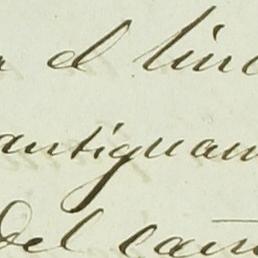 el linc
antiguam
del cam